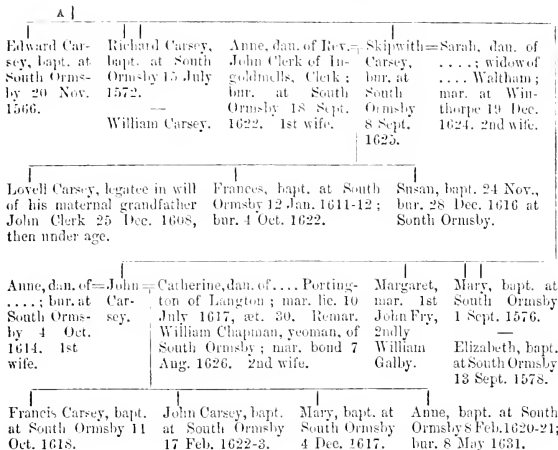 A
Edward Car-
sey, bapt. at
South Orms-
by 20 Nov.
1566.
Richard Carsey,
bapt. at South
Ormsby 15 July
1572.
—
William Carsey.
Anne, dan. of Rev.=
John Clerk of In-
goldmells, Clerk ;
bur. at South
Ormsby 18 Sept.
1622. 1st wife.
Skipwith=
Carsey,
bur. at
South
Ormsby
8 Sept.
1625.
Sarah, dan. of
. . . . ; widow of
. . . . Waltham ;
mar. at Win-
thorpe 19 Dec.
1624. 2nd wife.
Lovell Carsey, legatee in will
of his maternal grandfather
John Clerk 25 Dec. 1608,
then under age.
Frances, bapt. at South
Ormsby 12 Jan. 1611-12 ;
bur. 4 Oct. 1622.
Susan, bapt. 24 Nov.,
bur. 28 Dec. 1616 at
South Ormsby.
Anne, dan. of=
. . . . ; bur. at
South Orms-
by 4 Oct.
1614. 1st
wife.
John=
Car-
sey.
Catherine, dan. of . . . . Porting-
ton of Langton ; mar. lic. 10
July 1617, æt. 30. Remar.
William Chapman, yeoman, of
South Ormsby ; mar. bond 7
Aug. 1626. 2nd wife.
Margaret,
mar. 1st
John Fry,
2ndly
William
Galby.
Mary, bapt. at
South Ormsby
1 Sept. 1576.
—
Elizabeth, bapt.
at South Ormsby
13 Sept. 1578.
Francis Carsey, bapt.
at South Ormsby 11
Oct. 1618.
John Carsey, bapt.
at South Ormsby
17 Feb. 1622-3.
Mary, bapt. at
South Ormsby
4 Dec. 1617.
Anne, bapt. at South
Ormsby 8 Feb. 1620-21;
bur. 8 May 1631.